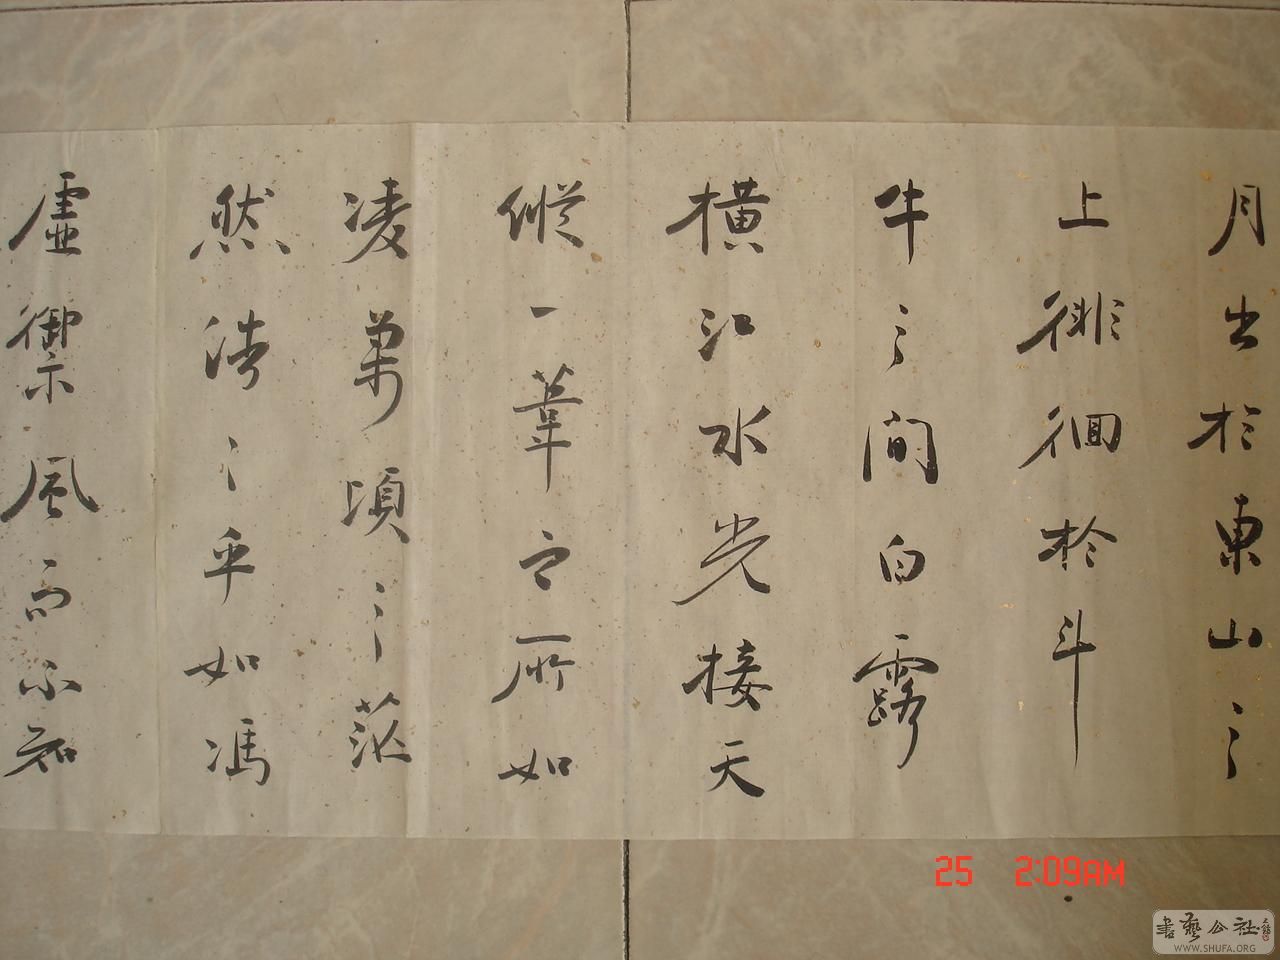 月出於東山之
上徘徊於斗
牛之間白露
橫江水光接天
縱一葦之所如
凌萬頃之茫
然浩浩乎如馮
虛禦風而不知
25 2:09AM
書藝公社
WWW.SHUFA.ORG